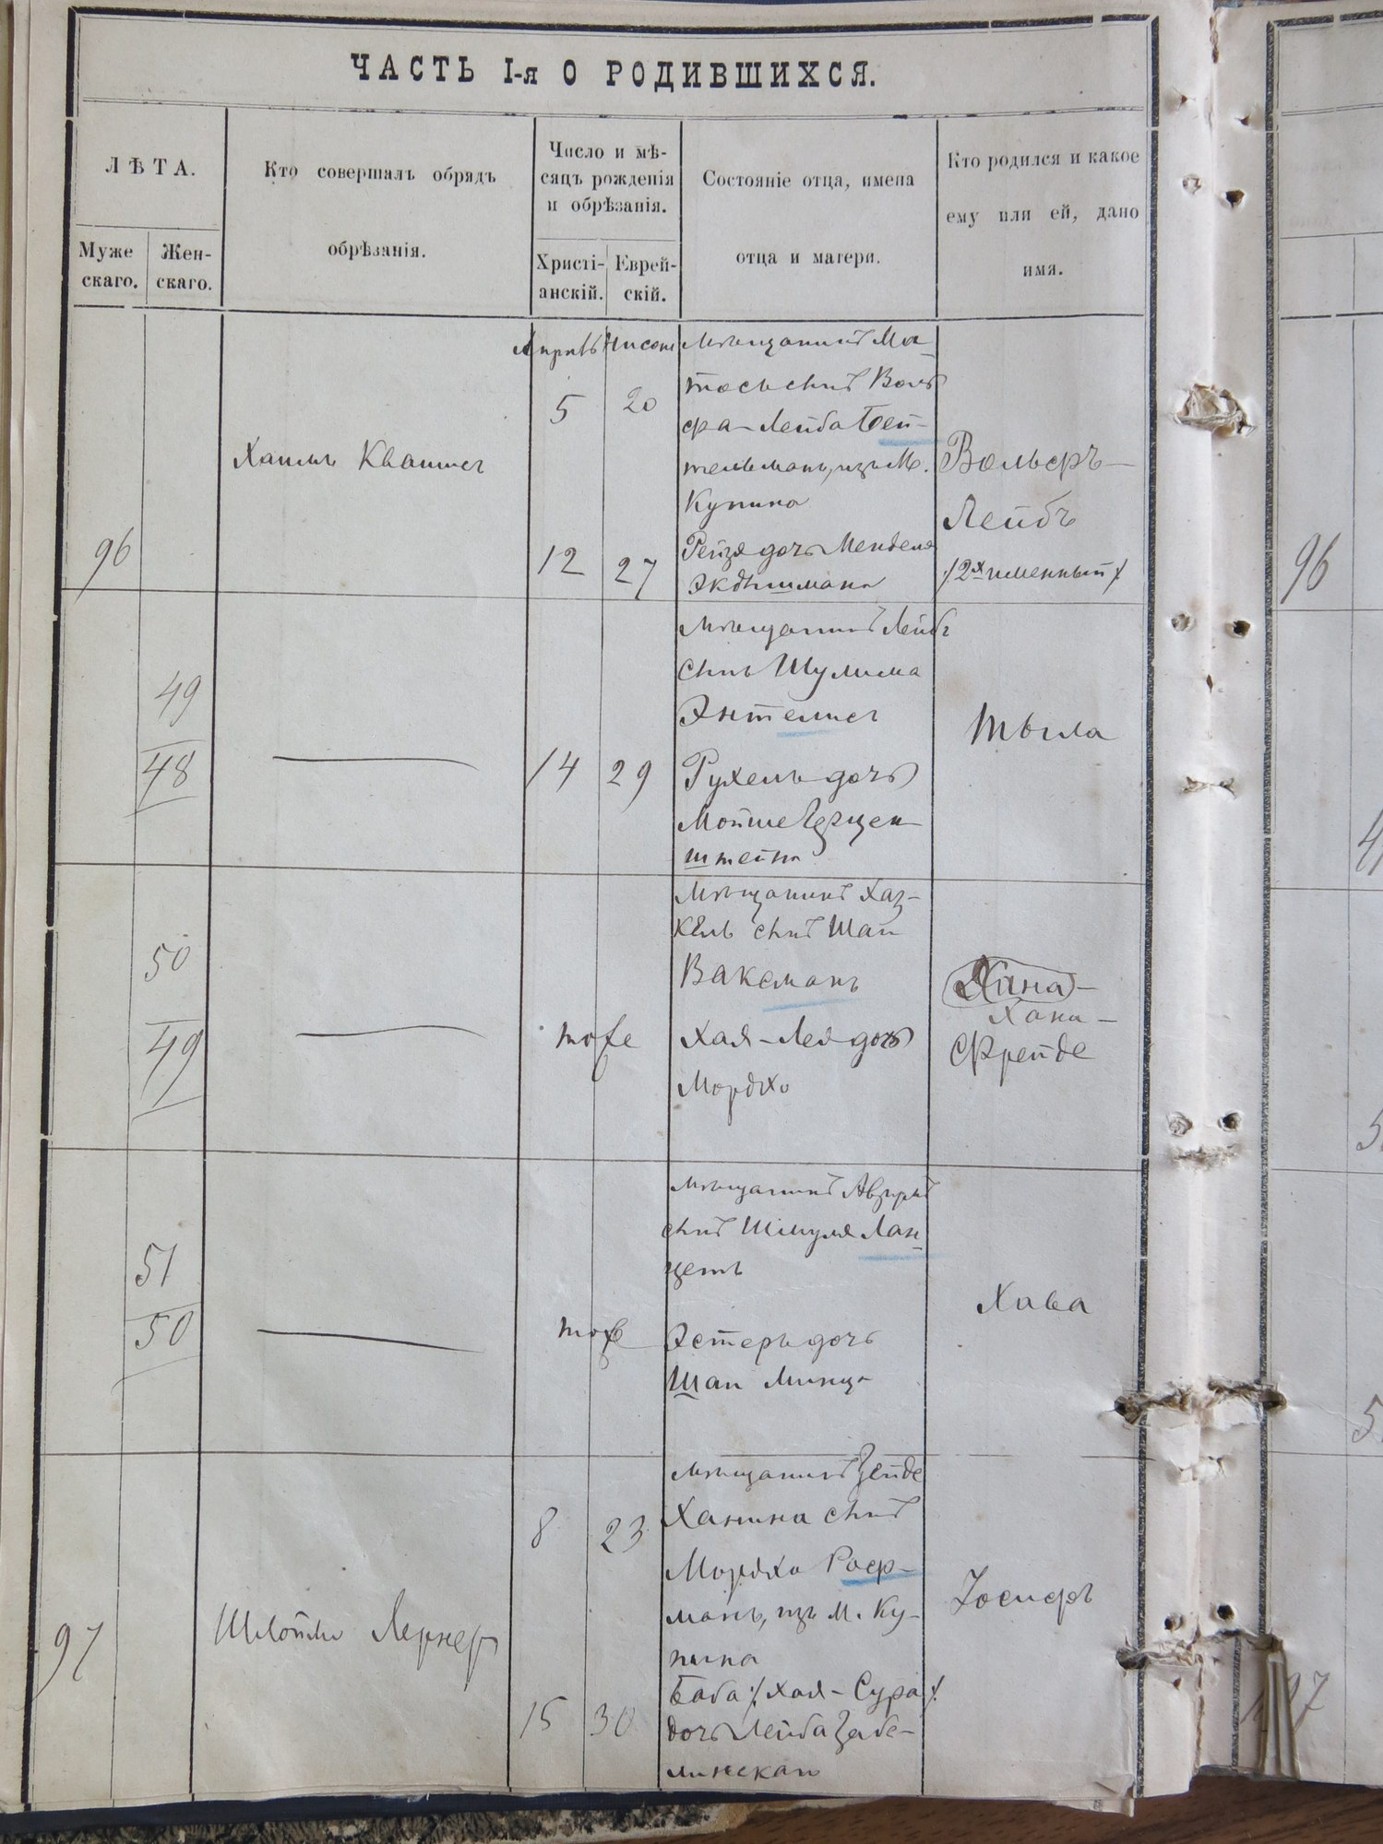 ЧАСТЬ I-я О РОДИВШИХСЯ.
ЛѢТА.
Муже
скаго.
Жен-
скаго.
Кто совершалъ обрядъ
обрѣзанія.
Число и мѣ-
сяцъ рожденія
и обрѣзанія.
Христі-
анскій.
Еврей-
скій.
Состояніе отца, имена
отца и матери.
Кто родился и какое
ему или ей, дано
имя.
96
Хаимъ
Апрѣль
5
12
Нисонъ
20
27
Мѣщанинъ Ма-
тось сынъ Воль
фа-Лейба Бей-
тельманъ, изъ М.
Купина
Рейзя дочь Менделя
Вольфъ-
Лейбъ
/2х именный/
96
49
48
14
29
Мѣщанинъ Лейбъ
сынъ Шулима
Энтелисъ
Рухель дочь
Мойше Герцен
штейна
Тыла
50
49
тоже
Мѣщанинъ Хаз-
кель сынъ Шаи
Ваксманъ
Хая-Лея дочь
Мордхо
Хана-
Хана-
Фрейде
51
50
тоже
Мѣщанинъ
сынъ Шмуля Лан
цетъ
Эстеръ дочь
Шаи Минца
Хава
97
Лернеръ
8
15
23
30
Мѣщанинъ Зейде
Ханина сынъ
Мордхо Роер-
манъ, изъ М. Ку-
пина
Баба /Хая-Сура/
дочь Лейба Забе-
линскаго
Іосифъ
97